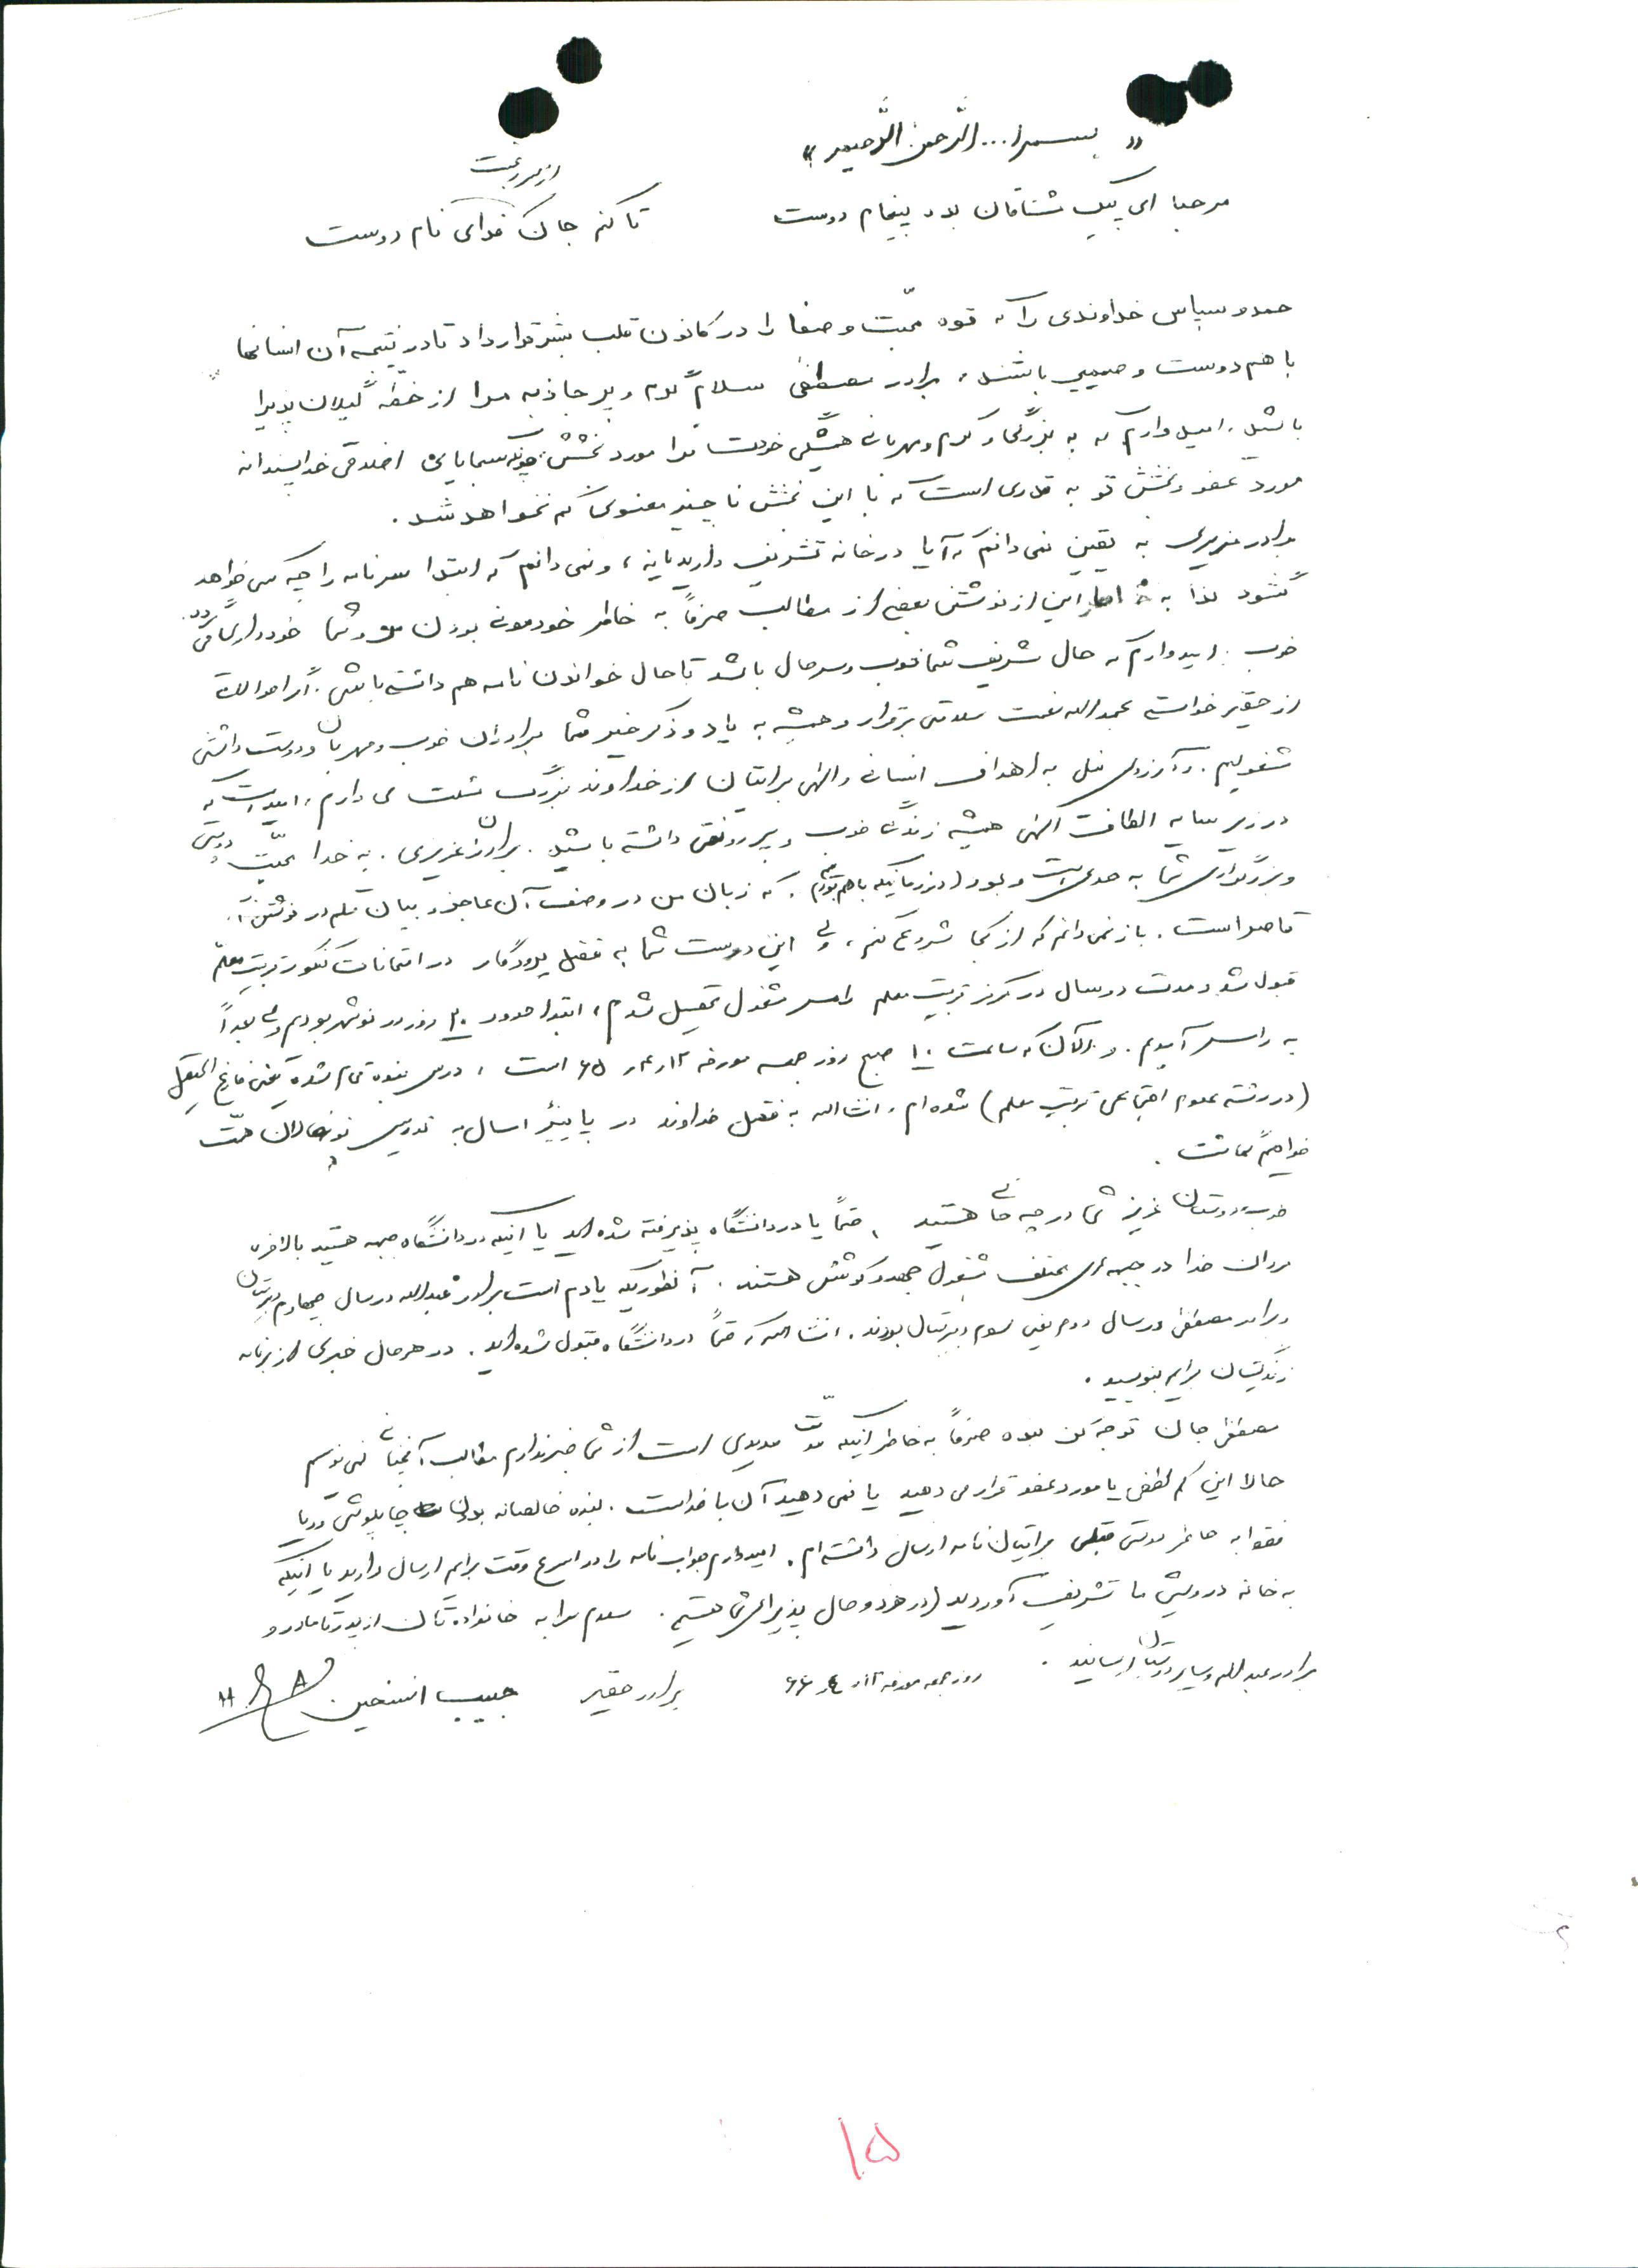 « بسم ا... الرّحمن الرّحیم »
از سر رغبت
مرحبا ای پیک مشتاقان بده پیغام دوست تا کنم جان فدای نام دوست
حمد و سپاس خداوندی را که قوه محبّت و صفا را در کانون قلب بشر قرار داد تا در نتیجه آن انسانها
با هم دوست و صمیمی باشند، برادر مصطفی سلام گرم و پر جاذبه مرا از خطّه گیلان پذیرا
باشید. امیدوارم که به بزرگی و کرم و مهربانی همیشگی خودت مرا مورد بخشش چونکه سجایای اخلاقی خداپسندانه
مورد عفو و بخشش تو به قدری است که با این بخشش ناچیز معنوی کم نخواهد شد.
برادر عزیزم به یقین نمی دانم که آیا در خانه تشریف دارید یا نه، و نمی دانم که ابتدا سر نامه را چه کسی خواهد
گشود لذا به این از نوشتن بعضی از مطالب صرفاً به خاطر خودمونی بودن من و شما خودداری می گردد.
خوب. امیدوارم که حال شریف شما خوب و سر حال باشد تا حال خواندن نامه هم داشته باشی. اگر احوالات
از حقیر خواسته بحمدالله نعمت سلامتی برقرار و همیشه به یاد و ذکر خیر شما برادران خوب و مهربان و دوست داشتنی
مشغولیم. و آرزوی نیل به اهداف انسانی و الهی برایتان از خداوند بزرگ مسئلت می دارم، امید است که
در زیر سایه الطاف الهی همیشه زندگی خوب و پر رونقی داشته باشید. برادران عزیزم. به خدا محبّت دوستی
و بزرگواری شما به حدی است و بود (در زمانیکه با هم بودیم). که زبان من در وصف آن عاجز و بیان قلم در نوشتن آن
قاصر است. باز نمی دانم که از کجا شروع کنم، ولی این دوست شما به فضل پروردگار در امتحانات کنکور تربیت معلم
قبول شد و مدت دو سال در مرکز تربیت معلم رامسر مشغول تحصیل شدم، ابتدا حدود ۲۰ روز در نوشهر بودم ولی بعداً
به رامسر آمدم. و الآن که ساعت ۱۰ صبح روز جمعه مورخه ۱۲ر۴ر۶۵ است، درس بنده تمام شده یعنی فارغ التحصیل
(در رشته علوم اجتماعی تربیت معلم) شده ام. انشاالله به فضل خداوند در پاییز امسال به تدریس نونهالان همّت
خواهم گماشت.
خوب دوستان عزیز شما در چه حالی هستید، حتماً یا در دانشگاه پذیرفته شده اید یا اینکه در دانشگاه جبهه هستید بالاخره
مردان خدا در جبهه های مختلف مشغول جهد و کوشش هستند. آنطوریکه یادم است برادر عبدالله در سال چهارم دبیرستان
و برادر مصطفی در سال دوم یعنی سوم دبیرستان بودند. انشاالله که حتماً در دانشگاه قبول شده اید. در هر حال خبری از برنامه
زندگیتان برایم بنویسید.
مصطفی جان توجه کن بنده صرفاً به خاطر اینکه مدّت مدیدی است از شما خبر ندارم مطالب آنچنانی نمی نویسم
حالا این کم لطفی یا مورد عفو قرار می دهید یا نمی دهید آن با خداست. بنده خالصانه بدون چاپلوسی و ریا
فقط به خاطر دوستی قبلی برایتان نامه ارسال داشته ام. امیدوارم جواب نامه را در اسرع وقت برایم ارسال دارید یا اینکه
به خانه درویشی ما تشریف آوردید (در هر دو حال پذیرای شما هستیم. سلام مرا به خانواده تان از پدر تا مادر و
برادر عبدالله و سایر دوستان برسانید.
روز جمعه مورخه ۱۲ر۴ر۶۶ برادر حقیر حبیب
۱۵